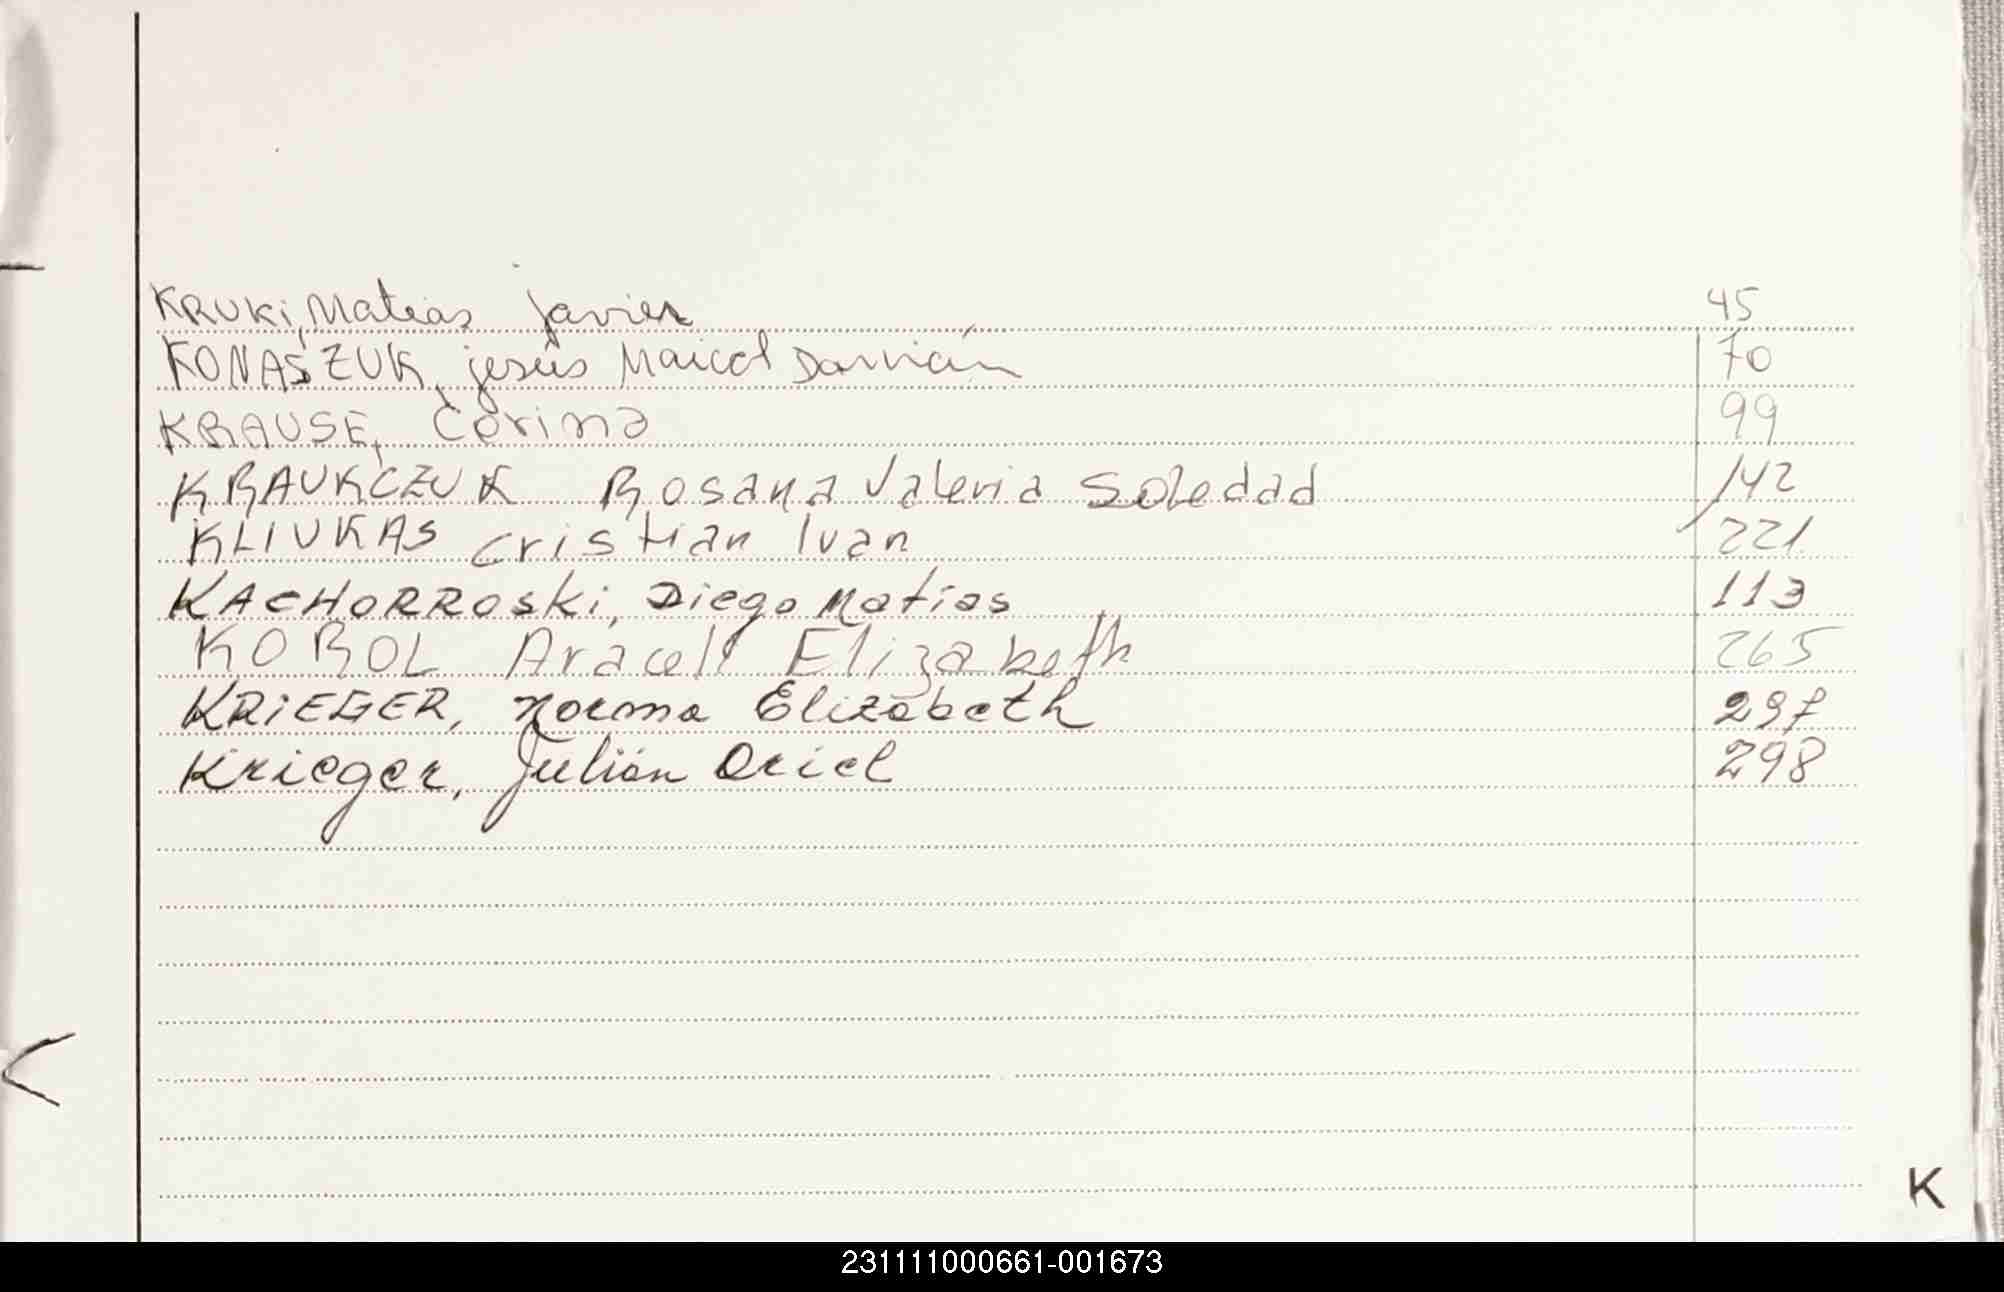 KRUKi, Matías Javier 45
KONASZUK, jesús Maicol Damián 70
KRAUSE, Corina 99
KRAUKCZUK Rosana Valeria Soledad 142
KLIUKAS Cristian Ivan 221
KACHORROSki, Diego Matias 113
KOROL Araceli Elizabeth 265
KRiEGER, Norma Elizabeth 297
Krieger, Julián Oriel 298
K
231111000661-001673